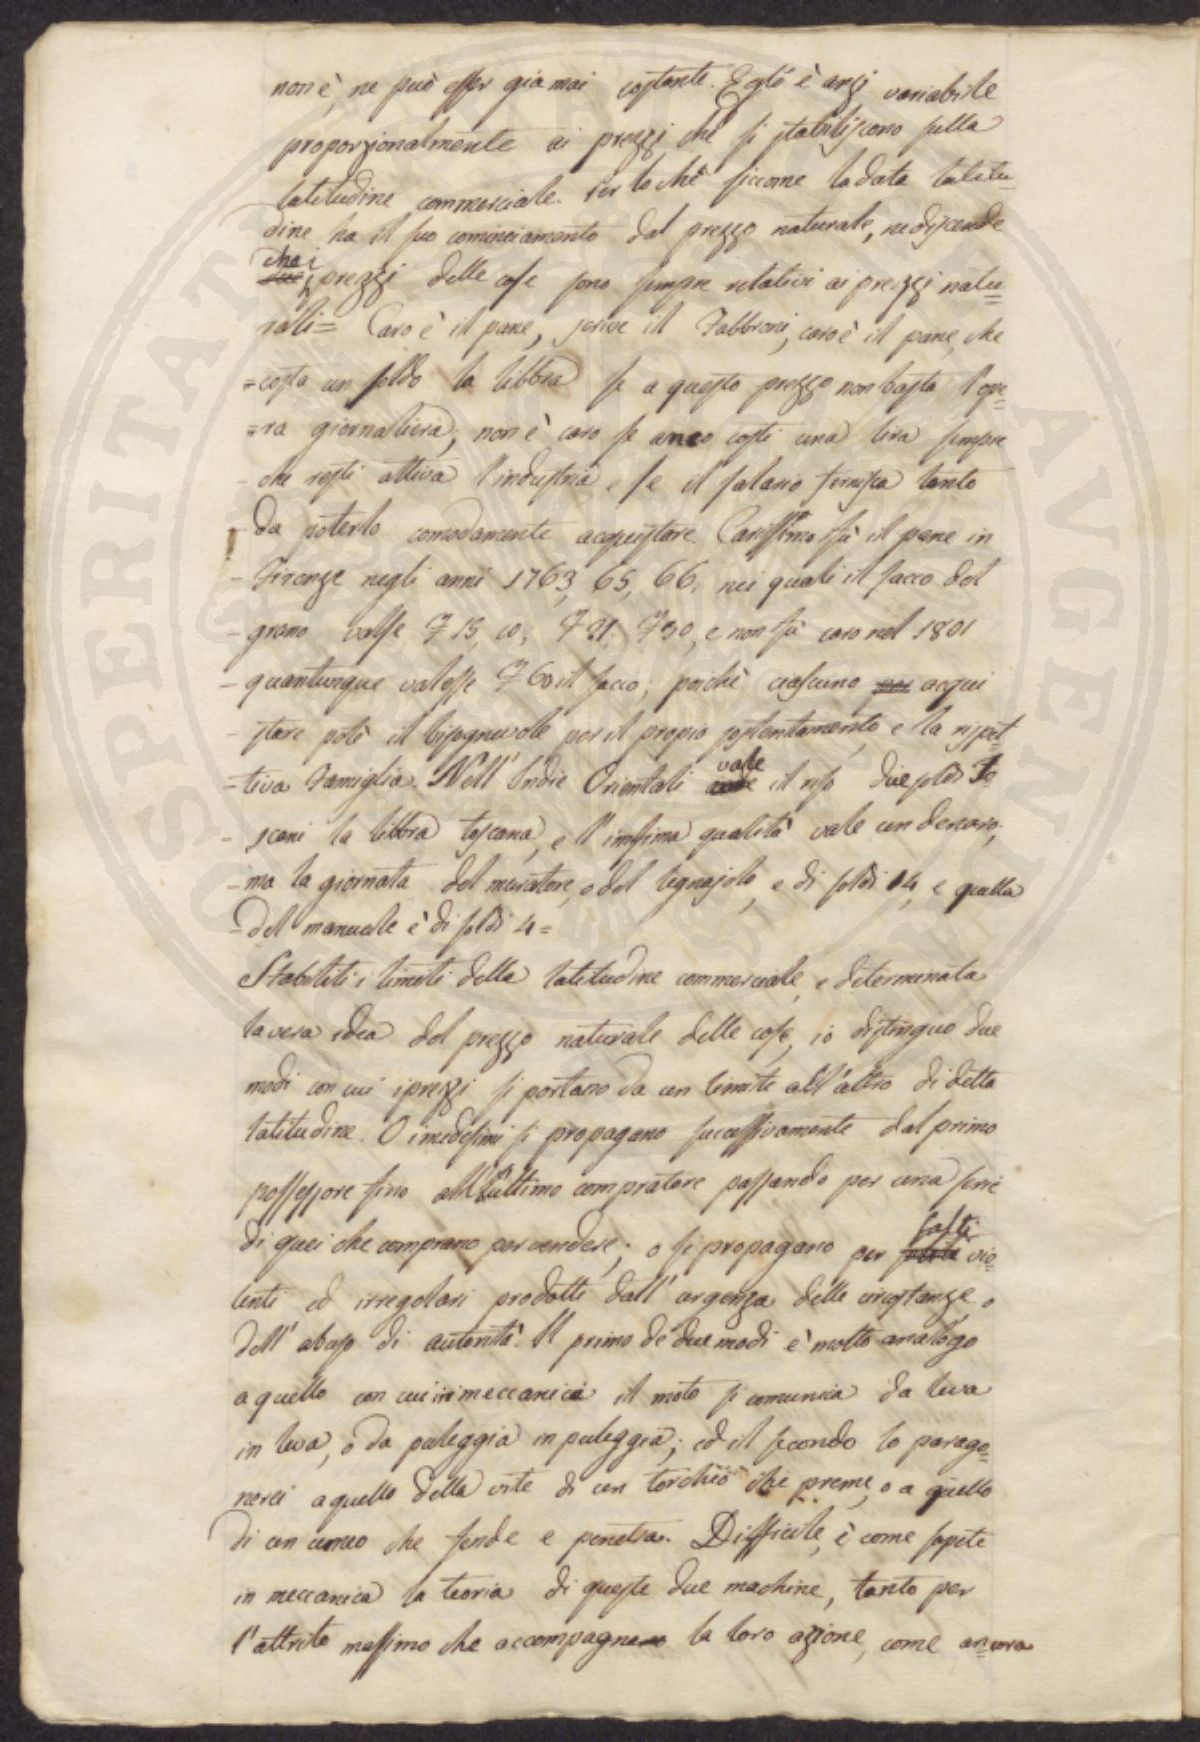 non è, ne può esser giammai costante. Egli è anzi variabile
proporzionalmente ai prezzi che si stabiliscono sulla
latitudine commerciale. Per lo chè siccome la data latitu-
dine ha il suo cominciamento dal prezzo naturale, ne discende
che i prezzi delle cose sono sempre relativi ai prezzi natu-
rali = Caro è il pane, scrive il Fabbroni, caro è il pane, che
= costa un soldo la libbra se a questo prezzo non basta l'ope-
= ra giornaliera, non è caro se anco costi una lira sempre
- che resti attiva l'industria, se il salario fornisca tanto
- da poterlo comodamente acquistare. Carissimo fù il pane in
- Firenze negli anni 1763, 65, 66, nei quali il sacco del
- grano valse £ 15, 10; £ 21; £ 30, e non fù caro nel 1801
- quantunque valesse £ 60 il sacco; poichè ciascuno acqui
- stare potè il bisognevole per il proprio sostentamento, e la rispet-
- tiva Famiglia. Nell' Indie Orientali vale il riso due soldi To-
- scani la libbra toscana, e l'infima qualità vale un denaro;
- ma la giornata del muratore, o del legnajolo, e di soldi 14, e quella
- del manuale è di soldi 4 =
Stabiliti i limiti della latitudine commerciale, e determinata
la vera idea del prezzo naturale delle cose, io distinguo due
modi con cui i prezzi si portano da un limite all'altro di detta
latitudine. O i medesimi si propagano successivamente dal primo
possessore fino all'ultimo compratore passando per una serie
di quei che comprano per vendere; o si propagano per salti vio-
lenti ed irregolari prodotti dall'urgenza delle circostanze, o
dell'abuso di autorità. Il primo de' due modi è molto analogo
a quello con cui in meccanica il moto si comunica da leva
in leva, o da puleggia in puleggia; ed il secondo lo parago-
nerei a quello della vite di un torchio che preme, o a quello
di un cuneo che fende e penetra. Difficile, è come sapete
in meccanica la teoria di queste due machine, tanto per
l'attrito massimo che accompagna la loro azione, come ancora
SPERITAT
AVGENT